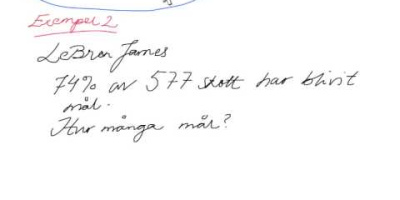 Exempel 2
LeBron James
74% av 577 skott har blivit
mål.
Hur många mål?